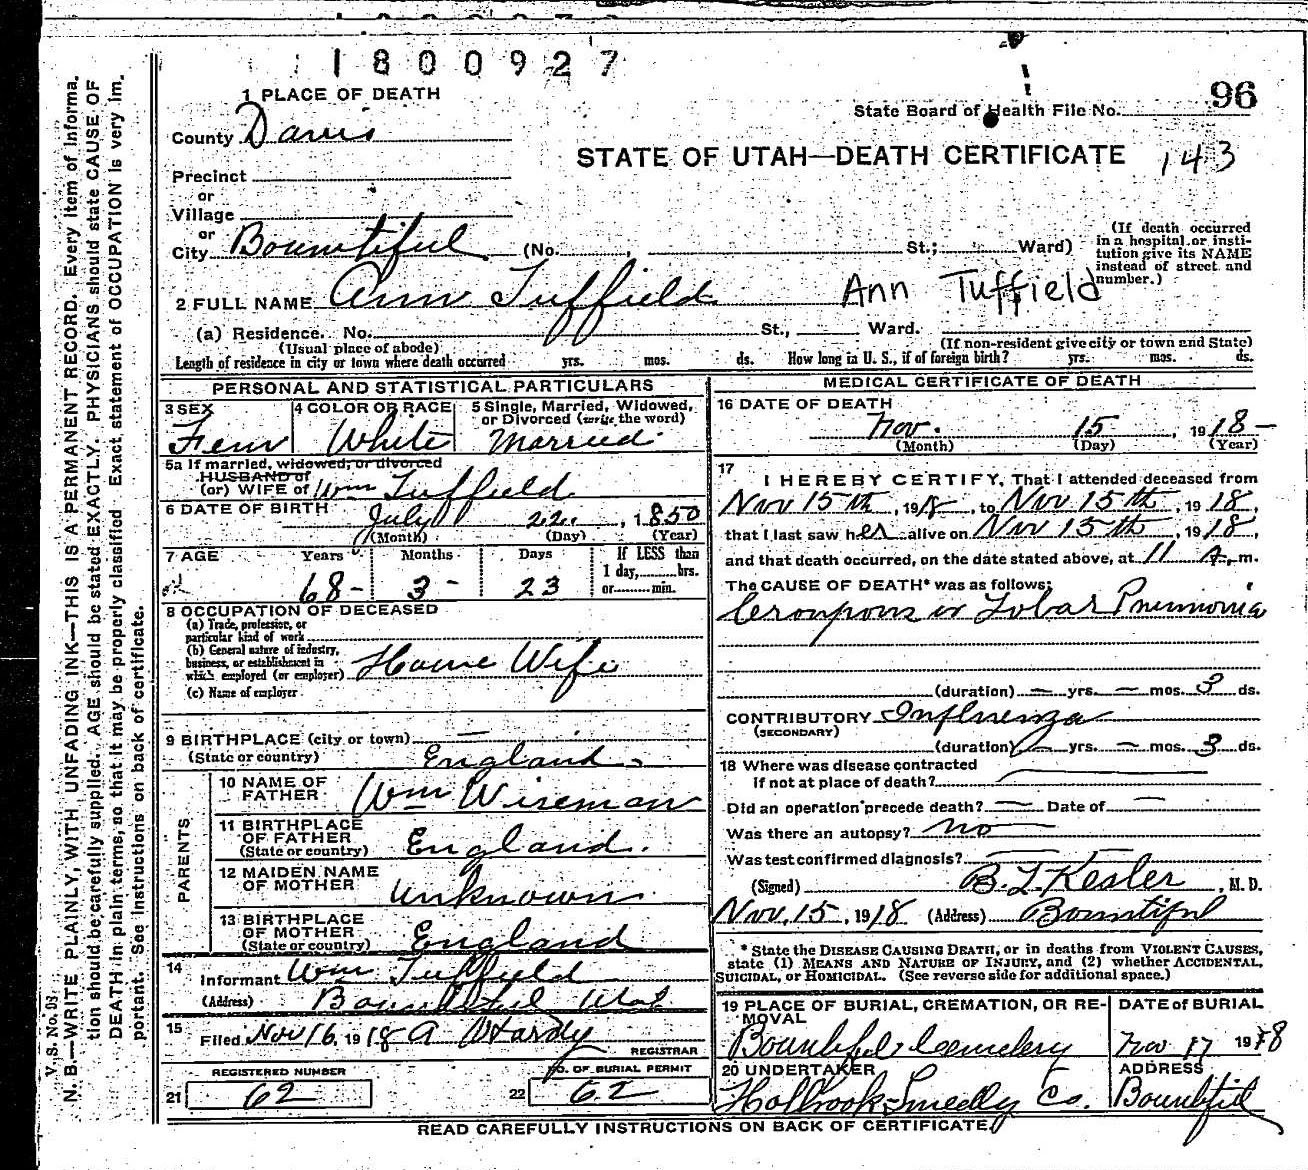 1800927
1 PLACE OF DEATH
State Board of Health File No. 96
County Davis
STATE OF UTAH—DEATH CERTIFICATE 143
Precinct
or
Village
or
City Bountiful (No. , St.; Ward)
(If death occurred in a hospital or institution give its NAME instead of street and number.)
2 FULL NAME Ann Tuffield Ann Tuffield
(a) Residence. No. St., Ward.
(Usual place of abode) (If non-resident give city or town and State)
Length of residence in city or town where death occurred yrs. mos. ds. How long in U. S., if of foreign birth? yrs. mos. ds.
PERSONAL AND STATISTICAL PARTICULARS
3 SEX 4 COLOR OR RACE 5 Single, Married, Widowed, or Divorced (write the word)
Fem White Married
5a If married, widowed, or divorced
HUSBAND of
(or) WIFE of Wm Tuffield
6 DATE OF BIRTH July 22, 1850
(Month) (Day) (Year)
7 AGE Years Months Days If LESS than
1 day, hrs.
68- 3- 23 or min.
8 OCCUPATION OF DECEASED
(a) Trade, profession, or
particular kind of work
(b) General nature of industry,
business, or establishment in
which employed (or employer) House Wife
(c) Name of employer
9 BIRTHPLACE (city or town) —
(State or country) England
PARENTS
10 NAME OF
FATHER Wm Wiseman
11 BIRTHPLACE
OF FATHER
(State or country) England.
12 MAIDEN NAME
OF MOTHER unknown
13 BIRTHPLACE
OF MOTHER
(State or country) England
14
Informant Wm Tuffield
(Address) Bountiful Utah
15
Filed Nov 16, 1918 A Hardy
REGISTRAR
REGISTERED NUMBER NO. OF BURIAL PERMIT
21 62 22 62
MEDICAL CERTIFICATE OF DEATH
16 DATE OF DEATH
Nov. 15, 1918-
(Month) (Day) (Year)
17
I HEREBY CERTIFY, That I attended deceased from
Nov 15th, 1918, to Nov 15th, 1918,
that I last saw her alive on Nov 15th, 1918,
and that death occurred, on the date stated above, at 11 A. m.
The CAUSE OF DEATH* was as follows:
Croupous or Lobar Pneumonia
(duration) — yrs. — mos. 3 ds.
CONTRIBUTORY Influenza
(SECONDARY)
(duration) — yrs. — mos. 3 ds.
18 Where was disease contracted
if not at place of death?
Did an operation precede death? — Date of —
Was there an autopsy? no
Was test confirmed diagnosis? —
(Signed) B. L. Kesler, M. D.
Nov. 15, 1918 (Address) Bountiful
* State the DISEASE CAUSING DEATH, or in deaths from VIOLENT CAUSES,
state (1) MEANS AND NATURE OF INJURY, and (2) whether ACCIDENTAL,
SUICIDAL, or HOMICIDAL. (See reverse side for additional space.)
19 PLACE OF BURIAL, CREMATION, OR RE-
MOVAL DATE of BURIAL
Bountiful Cemetery Nov 17 1918
20 UNDERTAKER ADDRESS
Holbrook-Smedly Co. Bountiful
READ CAREFULLY INSTRUCTIONS ON BACK OF CERTIFICATE
V. S. No. 05
N. B.—WRITE PLAINLY, WITH UNFADING INK—THIS IS A PERMANENT RECORD. Every item of informa-
tion should be carefully supplied. AGE should be stated EXACTLY. PHYSICIANS should state CAUSE OF
DEATH in plain terms, so that it may be properly classified. Exact statement of OCCUPATION is very im-
portant. See instructions on back of certificate.